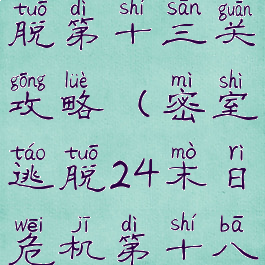 tuō dì shí sān guān
脱第十三关
gōng lüè mì shì
攻略（密室
táo tuō mò rì
逃脱24末日
wēi jī dì shí bā
危机第十八